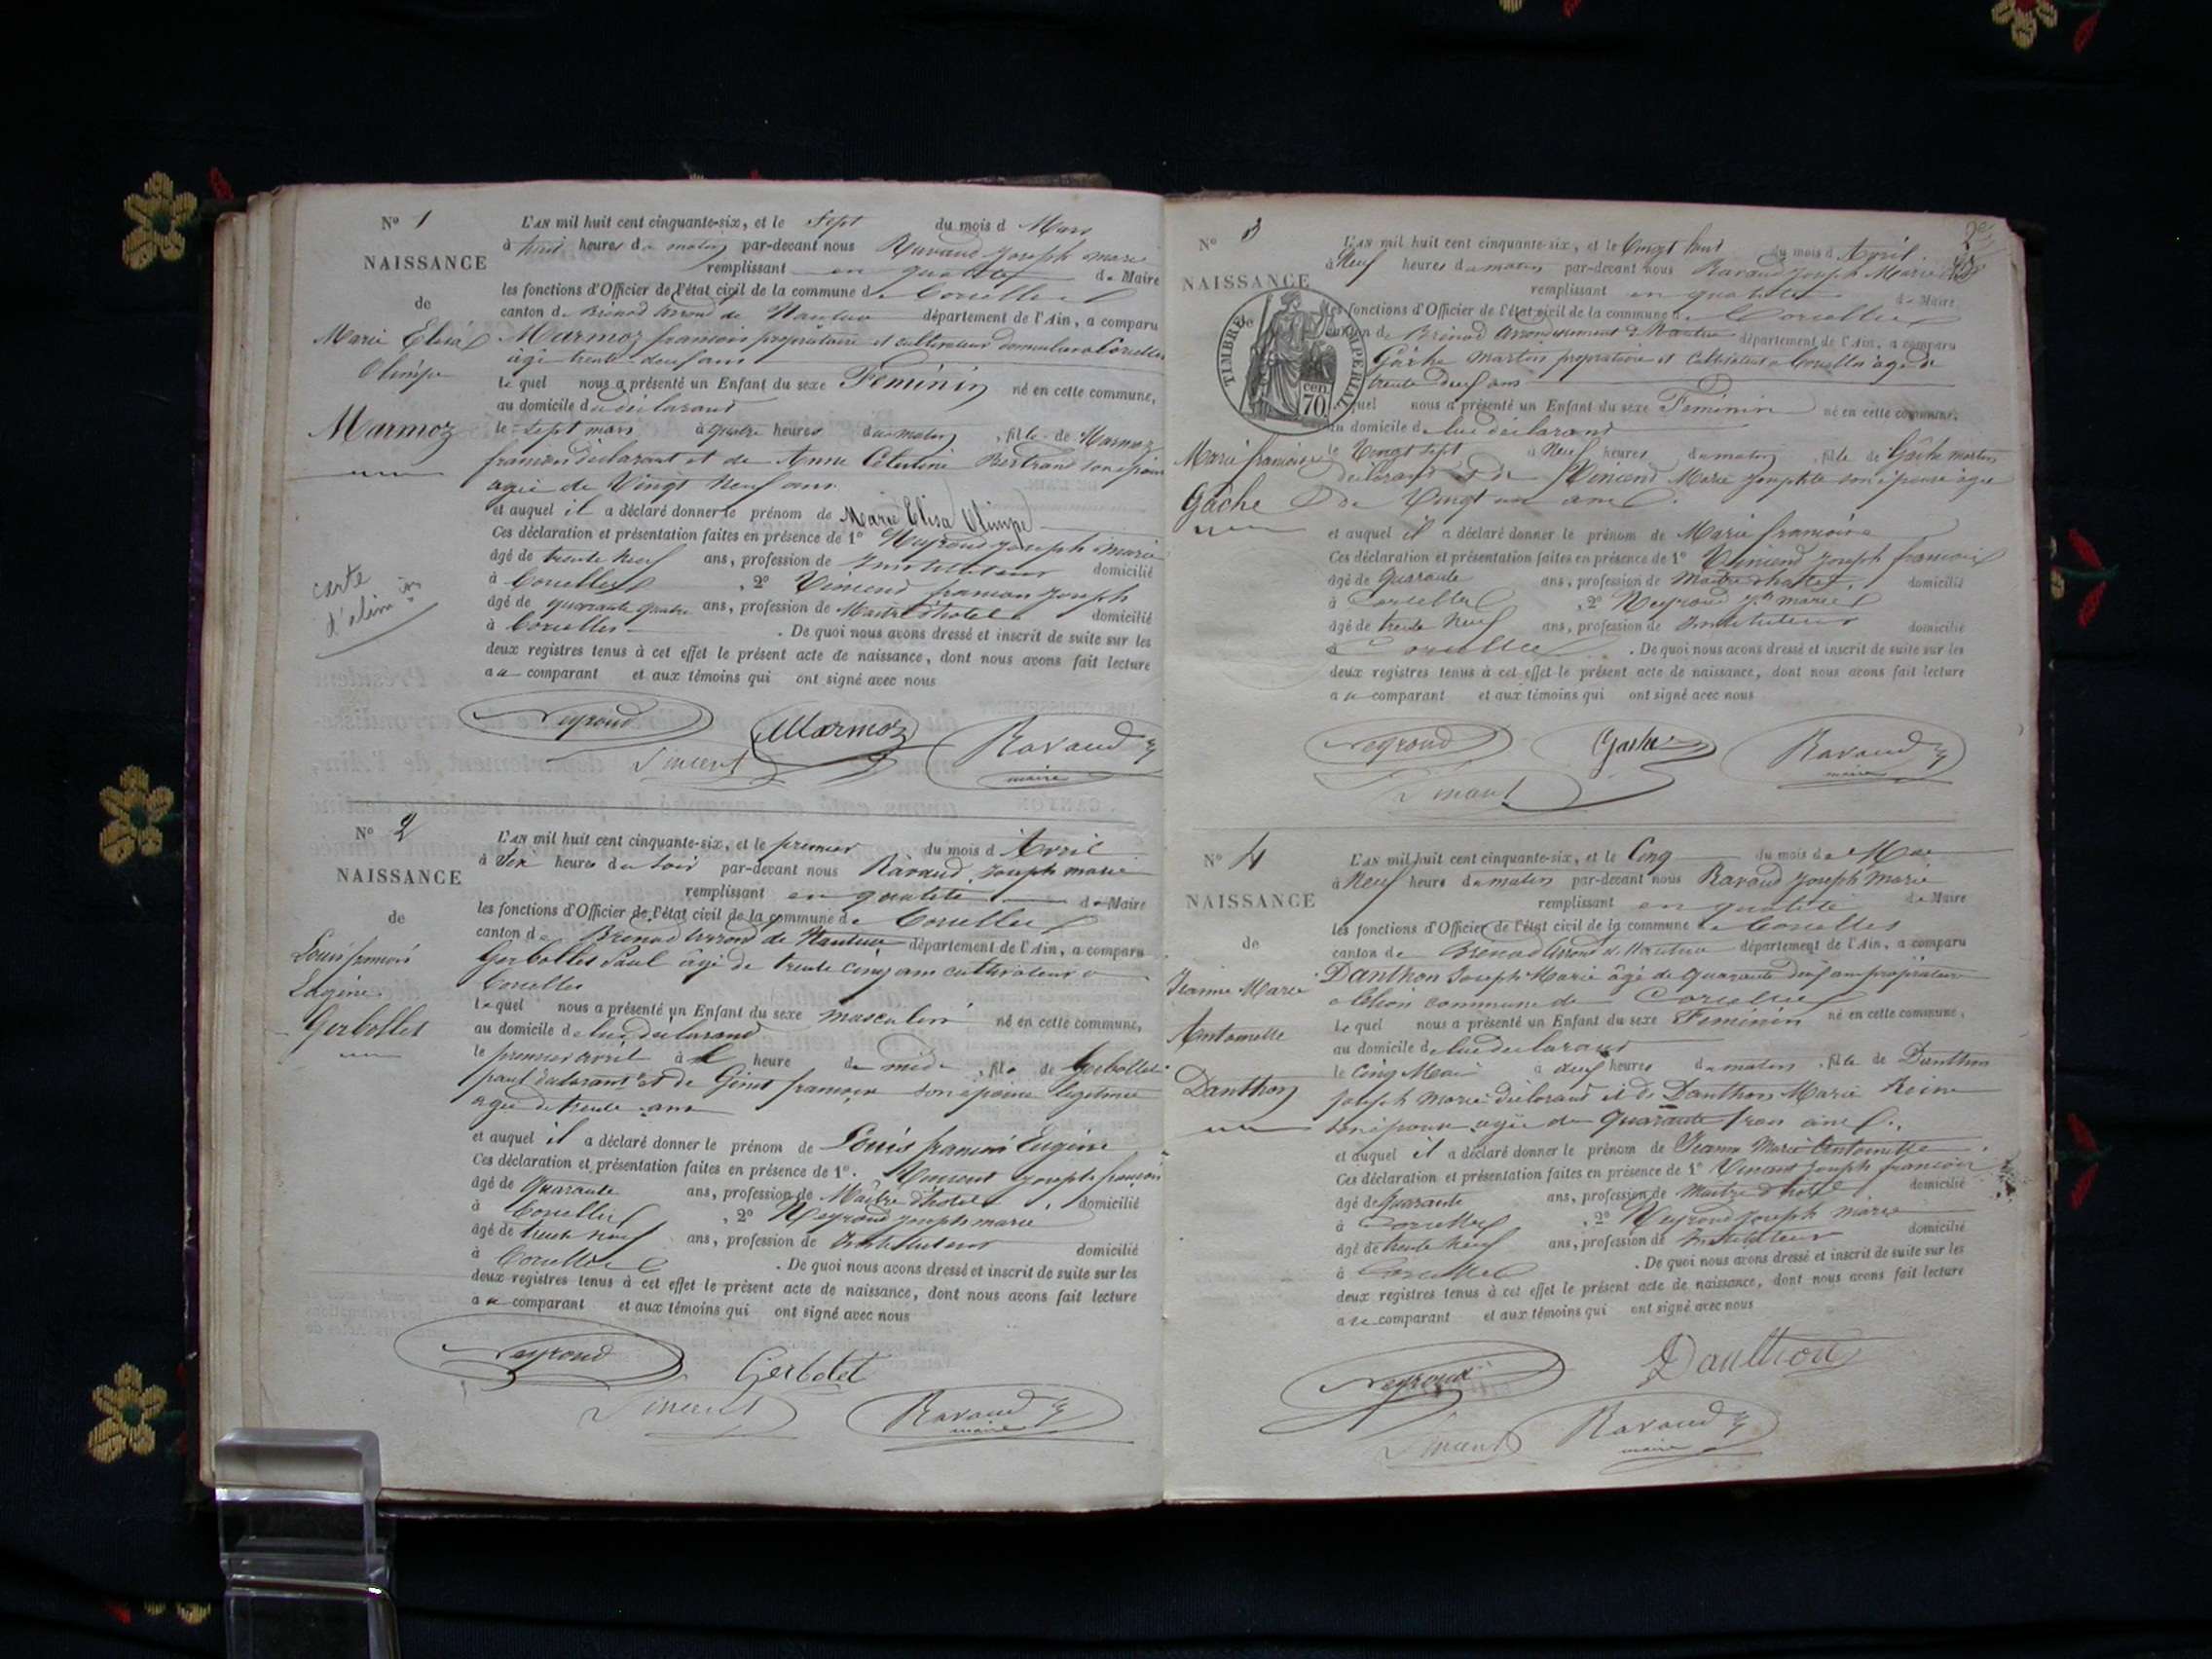 Nº 1
NAISSANCE
de
Marie Elisa
Olimpe
Marmoz
carte
d'élim on
L'AN mil huit cent cinquante-six, et le sept du mois d Mars
à huit heures du matin par-devant nous Ravaud Joseph Marie
remplissant en qualité de Maire
les fonctions d'Officier de l'état civil de la commune de Corcelles
canton de Brénod arrond de Nantua département de l'Ain, a comparu
Marmoz françois propriétaire et cultivateur domicilié à Corcelles
âgé trente deux ans
lequel nous a présenté un Enfant du sexe Féminin né en cette commune,
au domicile du déclarant
le sept mars à quatre heures du matin, fille de Marmoz
françois déclarant et de Anne Célestine Bertrand son épouse
agée de Vingt Neuf ans
et auquel il a déclaré donner le prénom de Marie Elisa Olimpe
Ces déclaration et présentation faites en présence de 1º Neyroud Joseph Marie
âgé de trente neuf ans, profession de Instituteur domicilié
à Corcelles, 2º Vincend françois Joseph
âgé de quarante quatre ans, profession de Maitre d'hotel domicilié
à Corcelles. De quoi nous avons dressé et inscrit de suite sur les
deux registres tenus à cet effet le présent acte de naissance, dont nous avons fait lecture
au comparant et aux témoins qui ont signé avec nous
Neyroud Marmoz Ravaud
Vincent maire
Nº 2
NAISSANCE
de
Louis françois
Eugène
Gerbollet
L'AN mil huit cent cinquante-six, et le premier du mois d'Avril
à Six heures du soir par-devant nous Ravaud Joseph marie
remplissant en qualité de Maire
les fonctions d'Officier de l'état civil de la commune de Corcelles
canton de Brénod arrond de Nantua département de l'Ain, a comparu
Gerbollet Paul agé de trente cinq ans cultivateur a
Corcelles
lequel nous a présenté un Enfant du sexe masculin né en cette commune,
au domicile de lui déclarand
le premier avril à heure de midi, fils de Gerbollet
paul déclarant et de Ginet françoise son épouse légitime
agée de trente ans
et auquel il a déclaré donner le prénom de Louis françois Eugène
Ces déclaration et présentation faites en présence de 1º. Vincent Joseph françois
âgé de Quarante ans, profession de Maître d'hotel, domicilié
à Corcelles, 2º Neyroud Joseph marie
âgé de trente neuf ans, profession de Instituteur domicilié
à Corcelles. De quoi nous avons dressé et inscrit de suite sur les
deux registres tenus à cet effet le présent acte de naissance, dont nous avons fait lecture
au comparant et aux témoins qui ont signé avec nous
Neyroud Gerbolet
Vincent Ravaud
maire
Nº 3
NAISSANCE
TIMBRE IMPERIAL
70 cen
Marie françoise
Gâche
L'AN mil huit cent cinquante-six, et le Vingt huit du mois d'Avril
à Neuf heures du matin par-devant nous Ravaud Joseph Marie
remplissant en qualité de Maire
les fonctions d'Officier de l'état civil de la commune de Corcelles
canton de Brénod Arrondissement de Nantua département de l'Ain, a comparu
Gâche Martin propriétaire et Cultivateur a Corcelles agé de
trente deux ans
lequel nous a présenté un Enfant du sexe Féminin né en cette commune,
au domicile de lui déclarand
le Vingt sept à Neuf heures du matin, fille de Gâche martin
déclarand et de Vincend Marie Josephte son épouse agée
de Vingt un ans
et auquel il a déclaré donner le prénom de Marie françoise
Ces déclaration et présentation faites en présence de 1º Vincend Joseph françois
âgé de Quarante ans, profession de Maitre d'hotel, domicilié
à Corcelles, 2º Neyroud Jh marie
âgé de trente Neuf ans, profession de Instituteur domicilié
à Corcelles. De quoi nous avons dressé et inscrit de suite sur les
deux registres tenus à cet effet le présent acte de naissance, dont nous avons fait lecture
au comparant et aux témoins qui ont signé avec nous
Neyroud Gache Ravaud
Vincent maire
Nº 4
NAISSANCE
de
Jeanne Marie
Antoinette
Danthon
L'AN mil huit cent cinquante-six, et le Cinq du mois de Mai
à Neuf heures du matin par-devant nous Ravaud Joseph Marie
remplissant en qualité de Maire
les fonctions d'Officier de l'état civil de la commune de Corcelles
canton de Brénod Arrond de Nantua département de l'Ain, a comparu
Danthon Joseph Marie âgé de Quarante deux ans propriétaire
commune de Corcelles
lequel nous a présenté un Enfant du sexe Féminin né en cette commune,
au domicile de lui déclarand
le Cinq Mai à deux heures du matin, fille de Danthon
Joseph Marie déclarand et de Danthon Marie Reine
son épouse agée de Quarante trois ans
et auquel il a déclaré donner le prénom de Jeanne Marie Antoinette
Ces déclaration et présentation faites en présence de 1º Vincent Joseph françois
âgé de Quarante ans, profession de Maitre d'hotel domicilié
à Corcelles, 2º Neyroud Joseph Marie
âgé de trente Neuf ans, profession de Instituteur domicilié
à Corcelles. De quoi nous avons dressé et inscrit de suite sur les
deux registres tenus à cet effet le présent acte de naissance, dont nous avons fait lecture
au comparant et aux témoins qui ont signé avec nous
Neyroud Danthon
Vincent Ravaud
maire